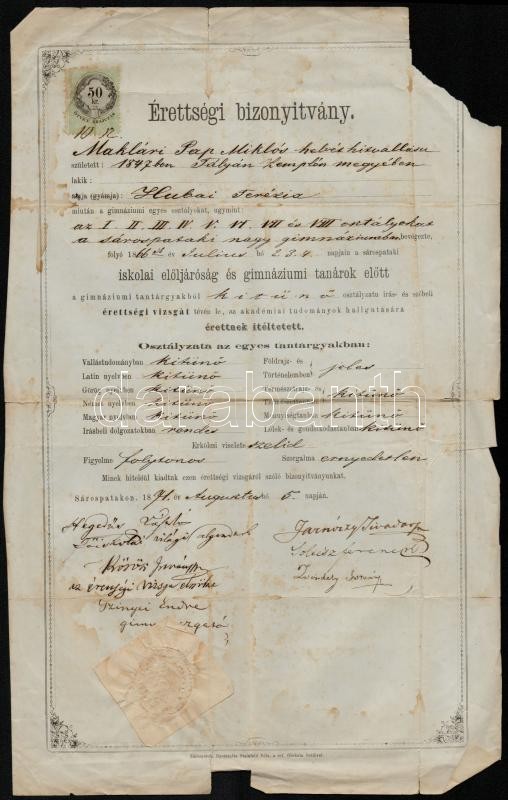 50
kr.
Érettségi bizonyitvány.
Maklári Pap Miklós helv. hitvallásu
született: 1847ben Tályán Zemplén megyében
lakik:
atyja (gyámja): Hubai Terézia
miután a gimnáziumi egyes osztályokat, ugymint:
az I. II. III. IV. V. VI. VII és VIII osztályokat
a sárospataki nagy gimnáziumban bevégezte,
folyó 1866 év Julius hó 2. 3. 4. napjain a sárospataki
iskolai előljáróság és gimnáziumi tanárok előtt
a gimnáziumi tantárgyakból kitünő osztályzatu irás- és szóbeli
érettségi vizsgát tévén le, az akadémiai tudományok hallgatására
érettnek itéltetett.
Osztályzata az egyes tantárgyakban:
Vallástudományban kitünő Földrajz- és
Latin nyelvben kitünő Történelemben jeles
Görög nyelvben kitünő Természetrajz- és
Német nyelvben kitünő Természettanban kitünő
Magyar nyelvben kitünő Mennyiségtanban kitünő
Irásbeli dolgozatokban rendes Lélek- és gondolkodástanban kitünő
Erkölcsi viselete szelid
Figyelme folytonos Szorgalma ernyedetlen
Minek hiteléül kiadtuk ezen érettségi vizsgáról szóló bizonyitványunkat.
Sárospatakon, 1871 év Augustus hó 5. napján.
Hegedüs László
világi algondnok
Körös
az érettségi vizsga elnöke
Szinyei Endre
gimn. igazgató
darabanth